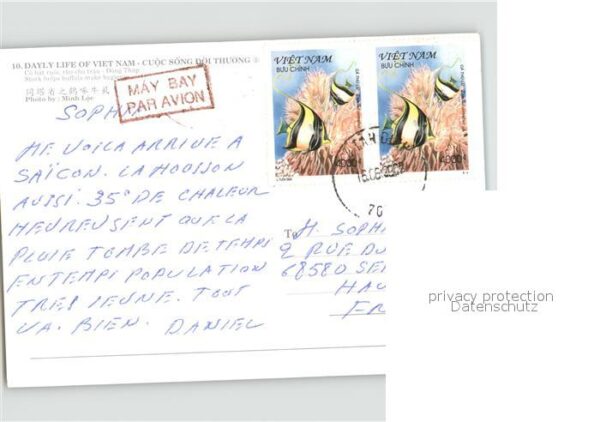 10. DAYLY LIFE OF VIET NAM - CUỘC SỐNG ĐỜI THƯỜNG
Cò bắt ruồi, rận cho trâu - Đồng Tháp
Stork helps buffalo make
Photo by: Minh Lộc
MÁY BAY
PAR AVION
VIỆT NAM
BƯU CHÍNH
4000đ
VIỆT NAM
BƯU CHÍNH
4000đ
70
SOPHIE
ME VOILA ARRIVE A
SAÏGON. LA MOUSSON
AUSSI. 35° DE CHALEUR
HEUREUSENT QUE LA
PLUIE TOMBE DE TEMPS
EN TEMPS POPULATION
TRES JEUNE. TOUT
VA. BIEN. DANIEL
To
M. SOPH
2 RUE DU
68580 SE
HAU
FR
privacy protection
Datenschutz